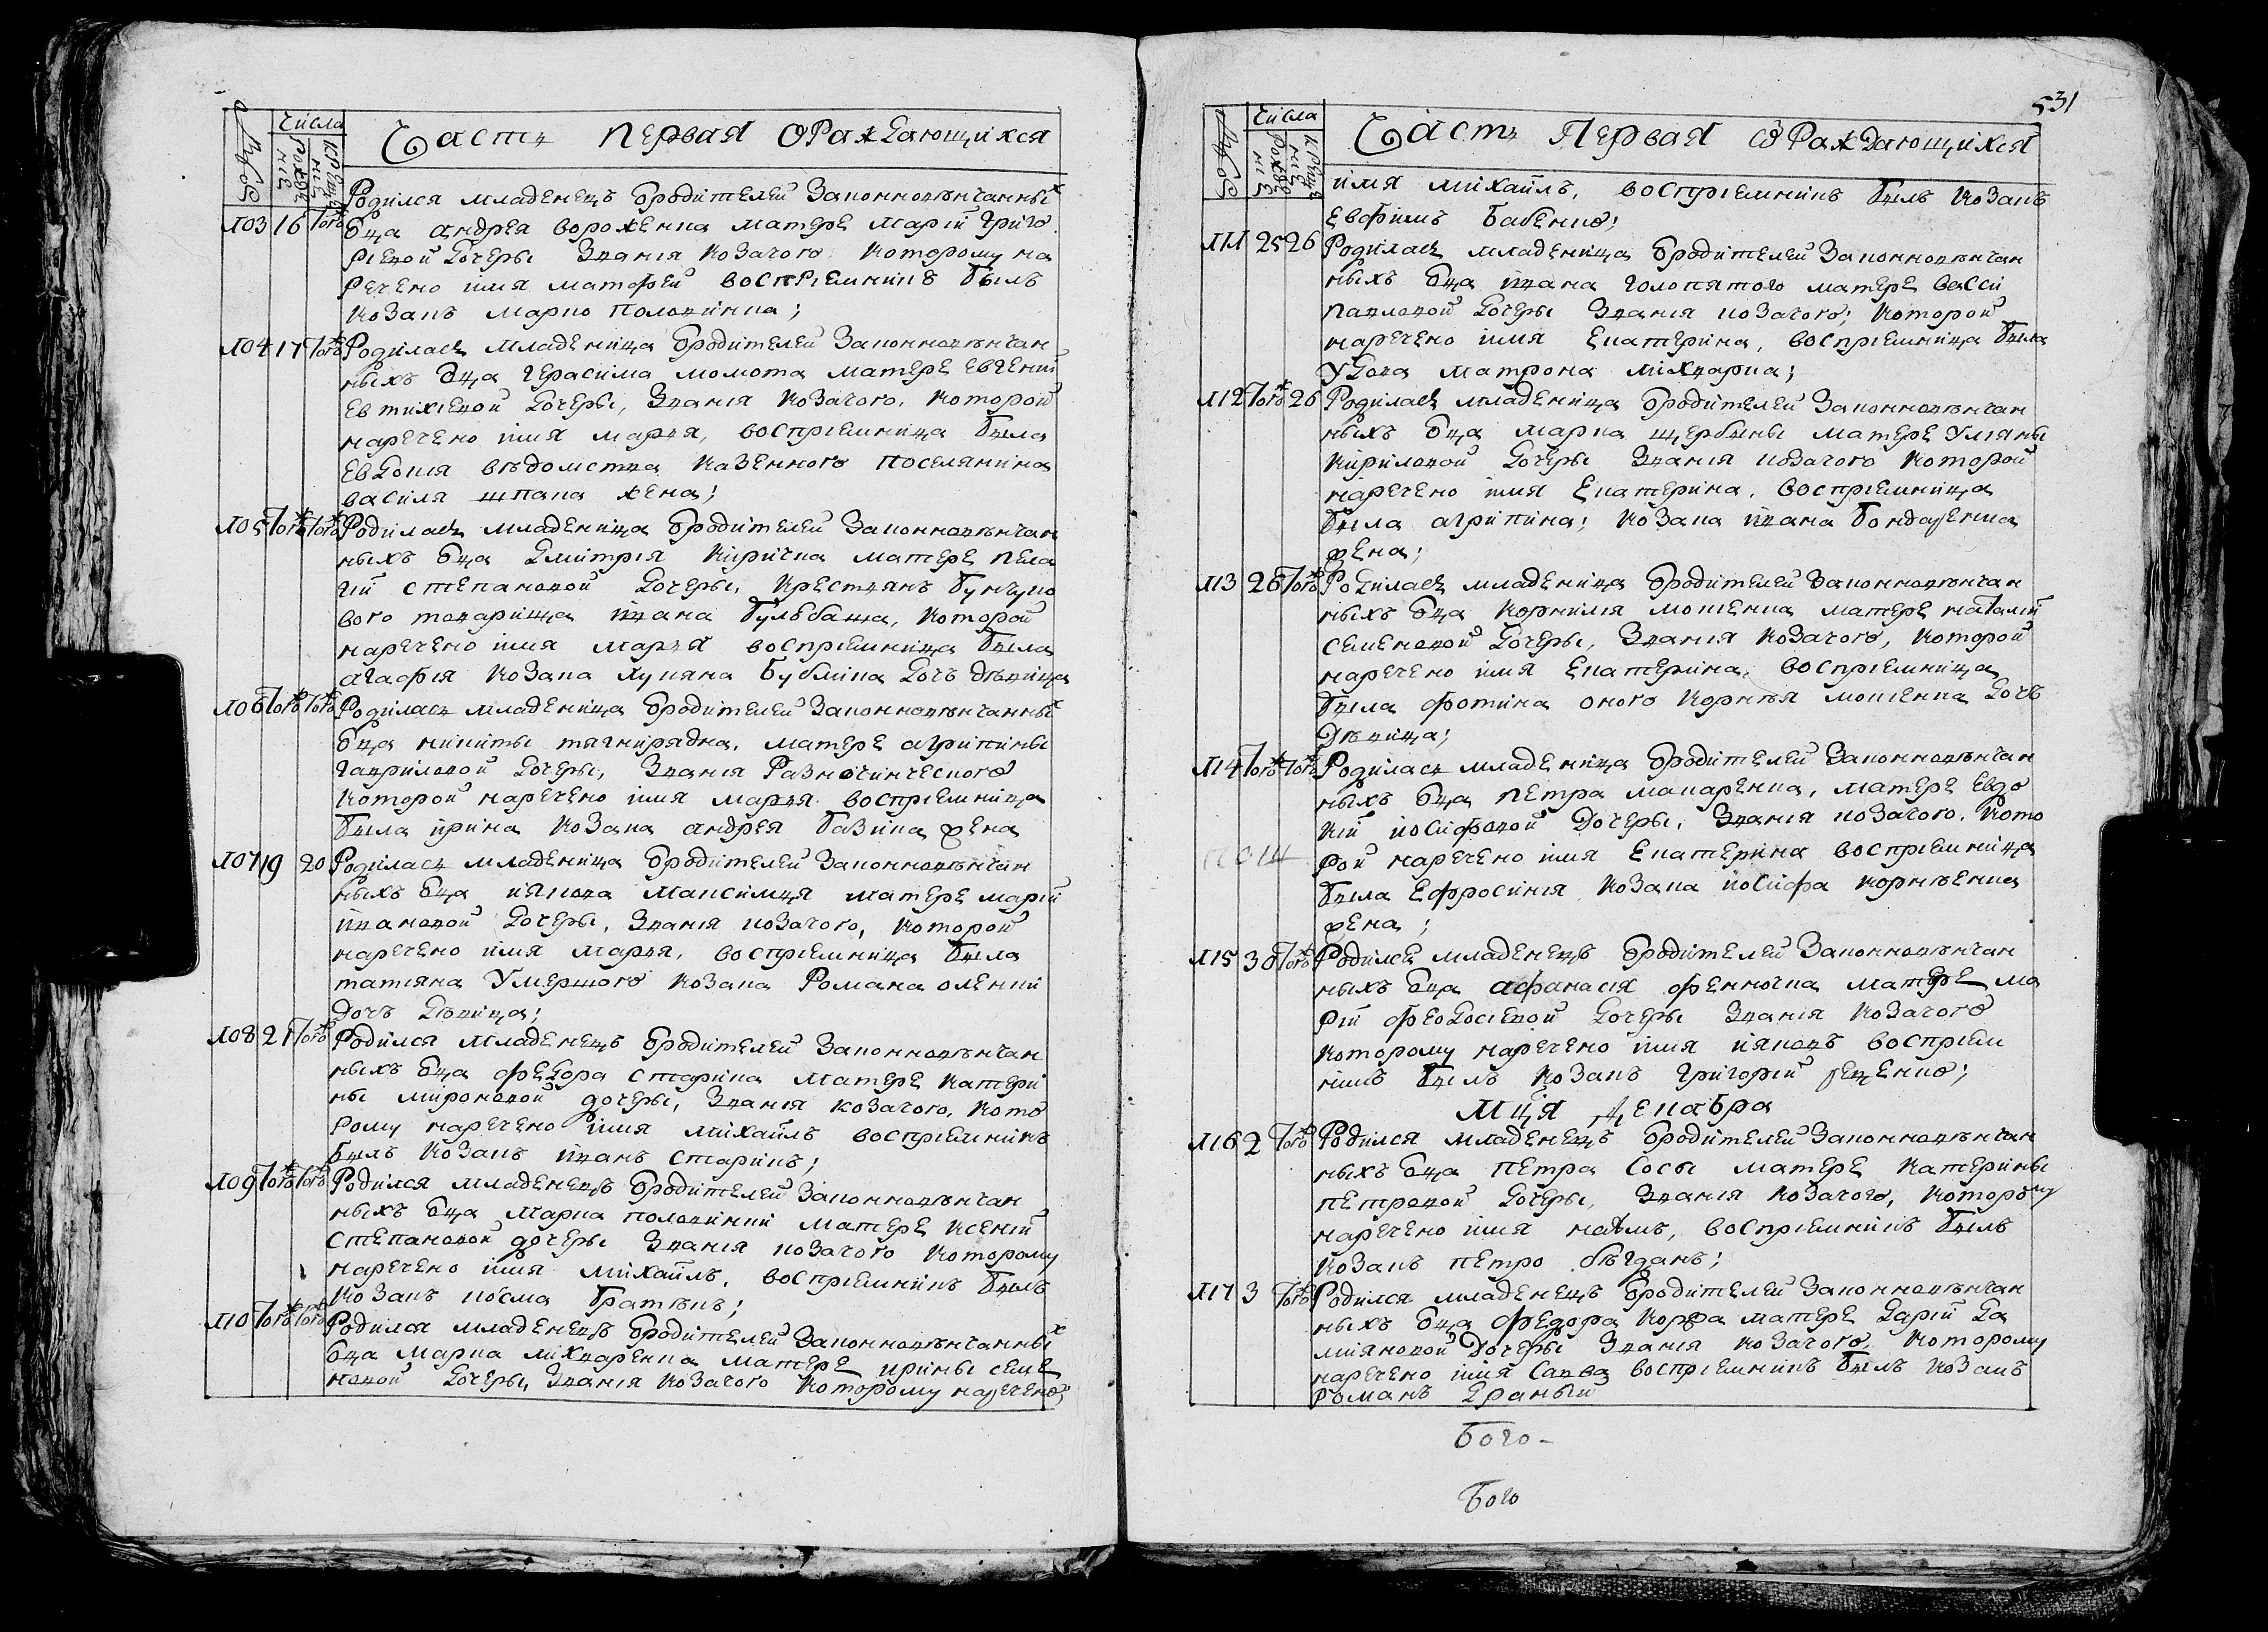 Числа
Часть первая ѡ Раждающихся
Родился младенецъ ѿродителей Законновѣнчанныхъ
103 16 Тогож ѿца андрея вороженка матере маріи Григо
ріевой дочеры Званія Козачого, Которому на
речено імя матѳей воспріемникъ былъ
козакъ марко половинка;
104 17 Тогож Родилась младеница ѿродителей Законновѣнчан
ныхъ ѿца герасима момота матере евгеніи
евтихіевой дочеры, Званія Козачого, Которой
наречено імя марья, воспріемница была
евдокія вѣдомства казенного поселянина
василя шпака жена;
105 Тогож Тогож Родилась младеница ѿродителей Законновѣнчан
ныхъ ѿца дмитрія киричка матере пела
гіи степановой дочеры, крестянъ бунчуко
вого товарища івана бульбаша, Которой
наречено імя марья воспріемница была
агафія козака лукяна бублика дочъ дѣвица
106 Тогож Тогож Родилась младеница ѿродителей Законновѣнчанныхъ
ѿца никиты тягнирядна, матере агрипины
гавриловой дочеры, Званія Разночинческого
которой наречено імя марья воспріемница
была ирина козака андрея базика жена
107 19 20 Родилась младеница ѿродителей Законновѣнчан
ныхъ ѿца иякова максимця матере маріи
івановой дочеры, Званія козачого, Которой
наречено імя марья, воспріемница была
татіяна Умершого козака Романа
дочъ дѣвица;
108 21 Тогож Родился младенецъ ѿродителей Законновѣнчан
ныхъ ѿца федора старика матере катери
ны мироновой дочеры, Званія козачого, кото
рому наречено імя михаилъ воспріемникъ
былъ козакъ іванъ старикъ;
109 Тогож Тогож Родился младенецъ ѿродителей Законновѣнчан
ныхъ ѿца марка половинки матере ксеніи
степановой дочеры Званія козачого которому
наречено імя михаилъ, воспріемникъ былъ
козакъ косма
110 Тогож Тогож Родился младенецъ ѿродителей Законновѣнчанныхъ
ѿца марка матере ирины семе
новой дочеры, Званія козачого которому наречено
531
Числа
Часть Первая ѡ Раждающихся
имя михаилъ, воспріемникъ былъ козакъ
евфимъ бабенко;
111 25 26 Родилась младеница ѿродителей Законновѣнчан
ныхъ ѿца івана голопятого матере вассы
павловой дочеры Званія козачого; которой
наречено імя екатерина, воспріемница была
удова матрона
112 Тогож 26 Родилась младеница ѿродителей Законновѣнчан
ныхъ ѿца марка щербины матере Уліяны
кириловой дочеры Званія козачого которой
наречено імя екатерина, воспріемница
была агрипина; козака івана бондаренка
жена;
113 26 Тогож Родилась младеница ѿродителей Законновѣнчан
ныхъ ѿца корнилія мокіенка матере наталіи
семеновой дочеры, Званія козачого, которой
наречено імя екатерина, воспріемница
была фотина оного корнѣя мокіенка дочъ
дѣвица;
114 Тогож Тогож Родилась младеница ѿродителей Законновѣнчан
ныхъ ѿца петра макаренка, матере евдо
кіи иосифовой дочеры, Званія козачого, кото
рой наречено імя екатерина воспріемница
была ефросинія козака иосифа корнѣенка
жена;
115 30 Тогож Родился младенецъ ѿродителей Законновѣнчан
ныхъ ѿца афанасія матере ма
ріи феодосіевой дочеры Званія козачого
которому наречено імя ияковъ воспріем
никъ былъ козакъ григорій
Мця Декабра
116 2 Тогож Родился младенецъ ѿродителей Законновѣнчан
ныхъ ѿца петра сосы матере катерины
петровой дочеры, Званія козачого, которому
наречено імя наѵмъ, воспріемникъ былъ
козакъ петро бѣгданъ;
117 3 Тогож Родился младенецъ ѿродителей Законновѣнчан
ныхъ ѿца федора коржа матере даріи да
міяновой дочеры Званія козачого, которому
наречено імя савва воспріемникъ былъ козакъ
романъ драный
Бого-
Бого